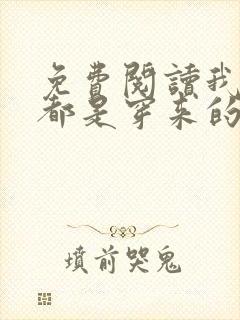 免費閱讀我
都是穿來的
墳前哭鬼